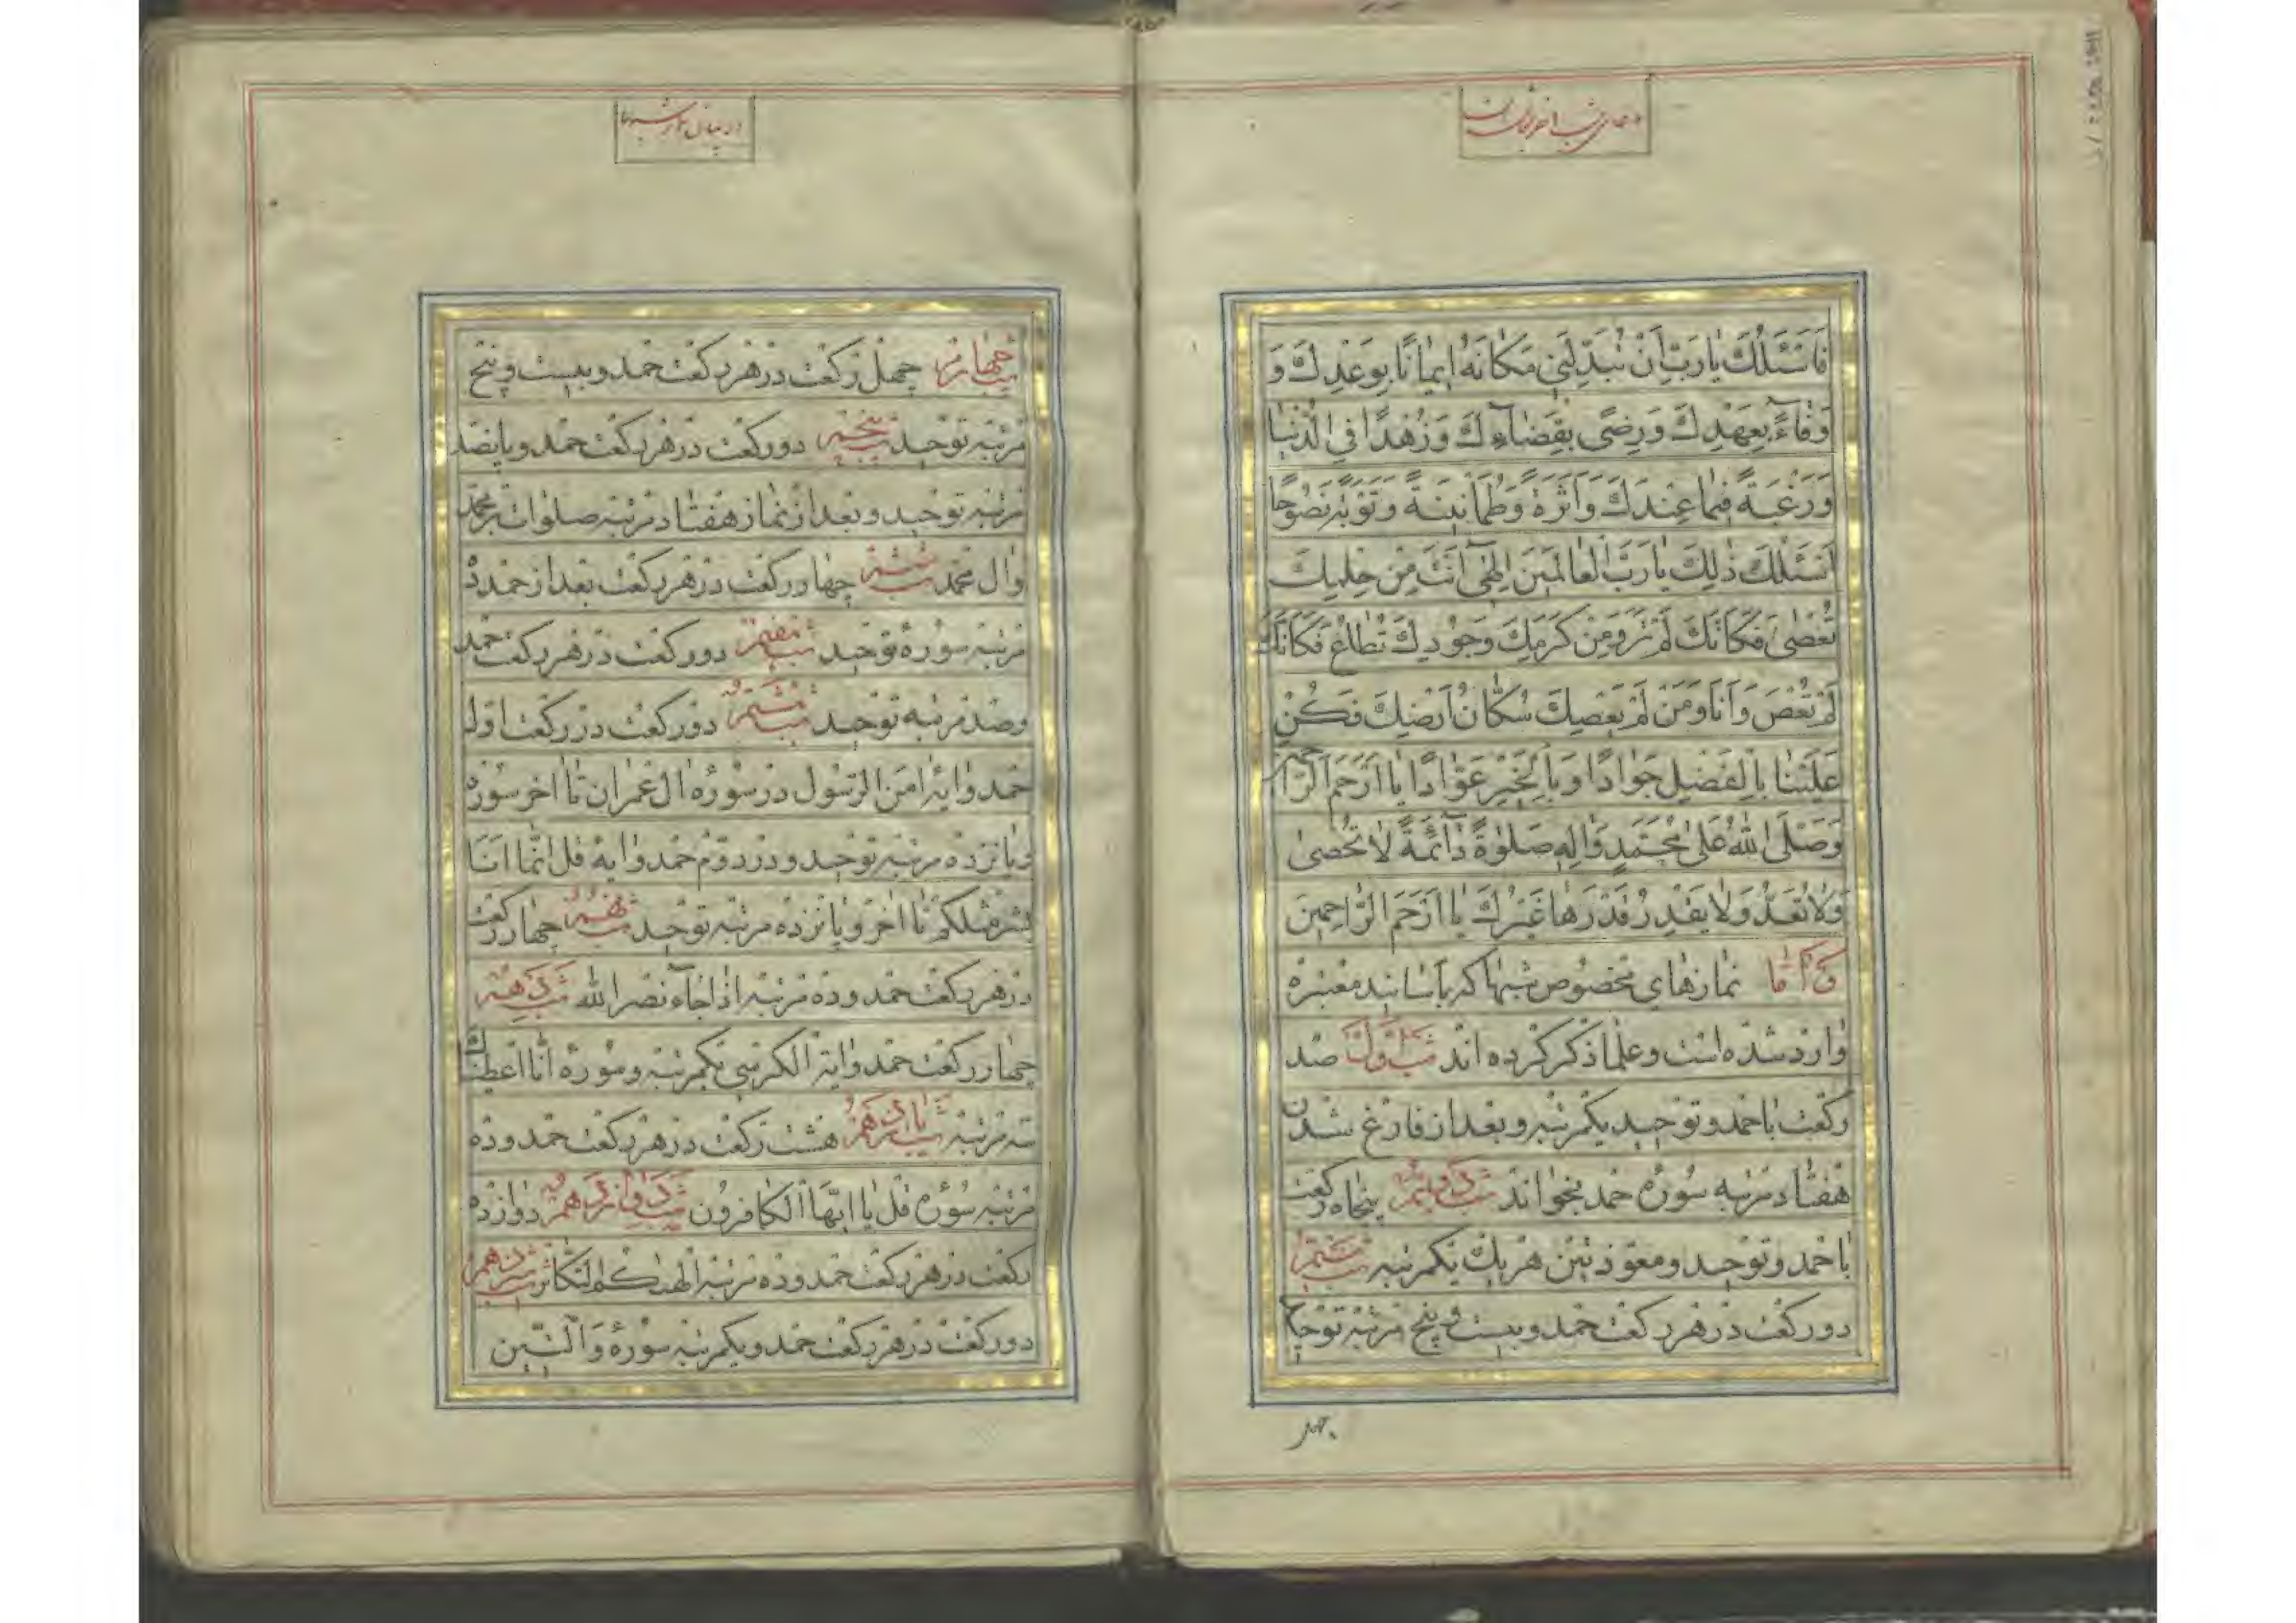 دعای شب آخر شعبان
فَاَسْئَلُكَ يٰا رَبِّ اَنْ تُبَدِّلَنِي مَكٰانَهُ ايمٰانًا بِوَعْدِكَ وَ
وَفٰاءً بِعَهْدِكَ وَرِضًى بِقَضٰاءِكَ وَزُهْدًا فِي الدُّنْيٰا
وَرَغْبَةً فيمٰا عِنْدَكَ وَاَثَرَةً وَطُمَانينَةً وَتَوْبَةً نَصُوحًا
اَسْئَلُكَ ذٰلِكَ يٰا رَبَّ الْعٰالَمينَ اِلٰهي اَنْتَ مِنْ حِلْمِكَ
تُعْصٰى فَكَاَنَّكَ لَمْ تُرَ وَمِنْ كَرَمِكَ وَجُودِكَ تُطٰاعُ فَكَاَنَّكَ
لَمْ تُعْصَ وَاَنَا وَمَنْ لَمْ يَعْصِكَ سُكّٰانُ اَرْضِكَ فَكُنْ
عَلَيْنٰا بِالْفَضْلِ جَوٰادًا وَبِالْخَيْرِ عَوّٰادًا يٰا اَرْحَمَ الرّٰاحمين
وَصَلَّى اللهُ عَلىٰ مُحَمَّدٍ وَاٰلِهِ صَلٰوةً دٰائِمَةً لٰا تُحْصىٰ
وَلٰا تُعَدُّ وَلٰا يَقْدِرُ قَدْرَهٰا غَيْرُكَ يٰا اَرْحَمَ الرّٰاحِمينَ
و امّا نمازهاي مخصوص شبها كه باسانيد معتبره
وارد شده است و علما ذكر كرده اند شب اول صد
ركعت با حمد و توحيد يكمرتبه و بعد از فارغ شدن
هفتاد مرتبه سوره حمد بخواند شب دويم پنجاه ركعت
با حمد و توحيد و معوذتين هر يك يكمرتبه شب سيم
دو ركعت در هر ركعت حمد و بيست و پنج مرتبه توحيد
در بيان نماز شبها
شب چهارم چهل ركعت در هر ركعت حمد و بيست و پنج
مرتبه توحيد شب پنجم دو ركعت در هر ركعت حمد و پانصد
مرتبه توحيد و بعد از نماز هفتاد مرتبه صلوات بر محمد
و ال محمد شب ششم چهار ركعت در هر ركعت بعد از حمد ده
مرتبه سوره توحيد شب هفتم دو ركعت در هر ركعت حمد
و صد مرتبه توحيد شب هشتم دو ركعت در ركعت اول
حمد و ايه امن الرسول در سوره ال عمران تا اخر سوره
و پانزده مرتبه توحيد و در دوم حمد و ايه قل انما انا
بشر مثلكم تا اخر و پانزده مرتبه توحيد شب نهم چهار ركعت
در هر ركعت حمد و ده مرتبه اذا جاء نصر الله شب دهم
چهار ركعت حمد و اية الكرسي يكمرتبه و سوره انا اعطيناك
سه مرتبه شب يازدهم هشت ركعت در هر ركعت حمد و ده
مرتبه سوره قل يا ايها الكافرون شب دوازدهم دوازده
ركعت در هر ركعت حمد و ده مرتبه الهيكم التكاثر شب سيزدهم
دو ركعت در هر ركعت حمد و يكمرتبه سوره والتين